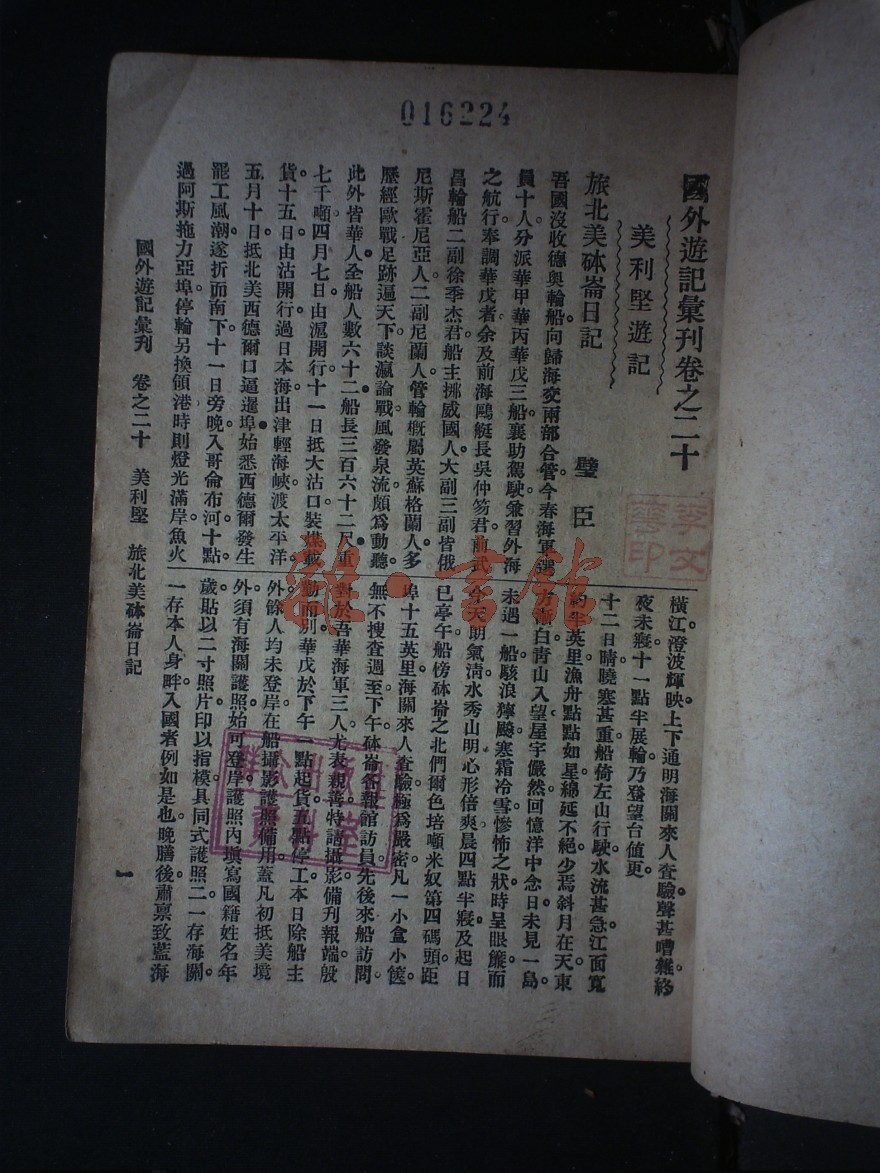 016224
國外遊記彙刊卷之二十
美利堅遊記
旅北美砵崙日記
璧臣
吾國沒收德奧輪船向歸海交兩部合管今春海軍選
員十人分派華甲華丙華戊三船襄助駕駛兼習外海
之航行奉調華戊者余及前海鷗艇長吳仲笏君前武
昌輪船二副徐季杰君船主挪威國人大副三副皆俄
尼斯霍尼亞人二副尼蘭人管輪概屬英蘇格蘭人多
歷經歐戰足跡遍天下談瀛論戰風發泉流頗爲動聽
此外皆華人全船人數六十二船長三百六十二尺重
七千噸四月七日由滬開行十一日抵大沽口裝煤載
貨十五日由沽開行過日本海出津輕海峽渡太平洋
五月十日抵北美西德爾口逼暹埠始悉西德爾發生
罷工風潮遂折而南下十一日旁晚入哥侖布河十點
過阿斯拖力亞埠停輪另換領港時則燈光滿岸魚火
橫江澄波輝映上下通明海關來人查驗聲甚嘈雜終
夜未寢十一點半展輪乃登望台值更
十二日晴曉寒甚重船倚左山行駛水流甚急江面寬
約半英里漁舟點點如星綿延不絕少焉斜月在天東
方漸白青山入望屋宇儼然回憶洋中念日未見一島
未遇一船駭浪獰飈寒霜冷雪慘怖之狀時呈眼簾而
今天朗氣清水秀山明心形倍爽晨四點半寢及起日
已亭午船傍砵崙之北們爾色培噸米奴第四碼頭距
埠十五英里海關來人查驗極爲嚴密凡一小盒小篋
無不搜查週至下午砵崙各報館訪員先後來船訪問
對於吾華海軍三人尤表親善特請攝影備刊報端殷
勤而別華戊於下午一點起貨五點停工本日除船主
外餘人均未登岸在船攝影護照備用蓋凡初抵美境
外須有海關護照始可登岸護照內填寫國籍姓名年
歲貼以二寸照片印以指模具同式護照二一存海關
一存本人身畔入國者例如是也晚膳後肅稟致藍海
國外遊記彙刊　卷之二十　美利堅　旅北美砵崙日記
一
李文
華印